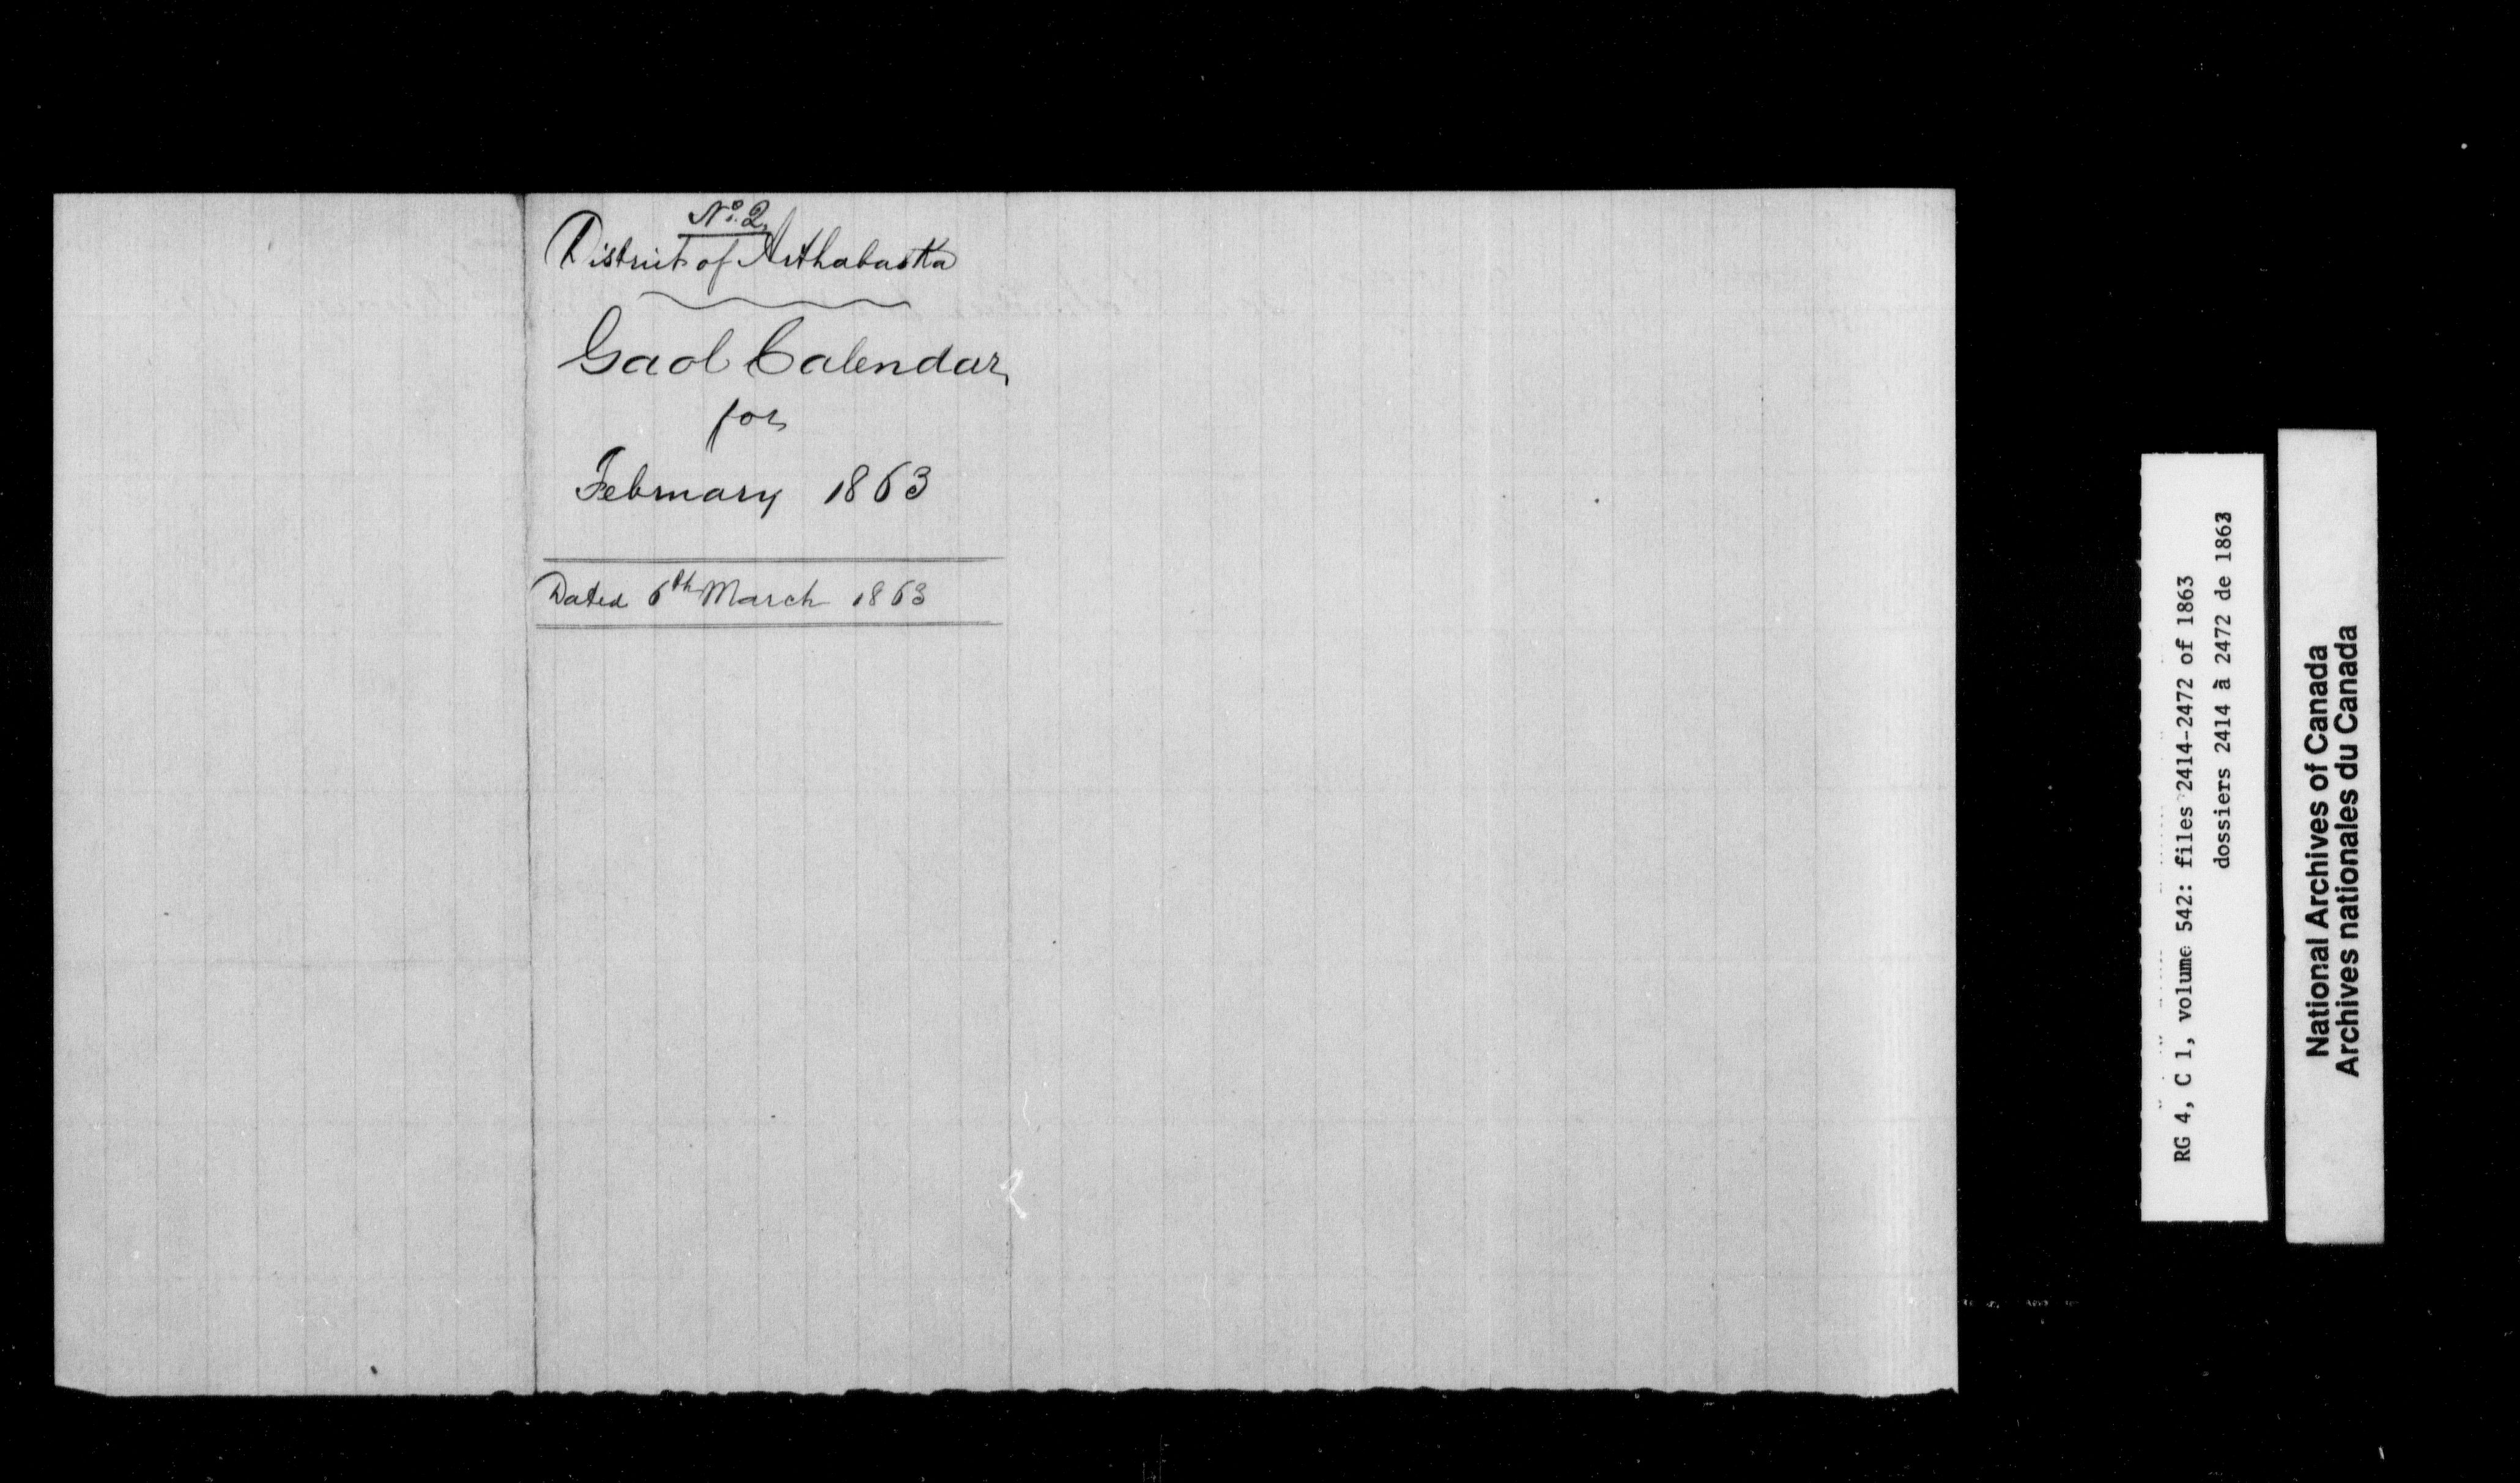 No. 2.
District of Arthabaska
Gaol Calendar
for
February 1863
Dated 6th March 1863
RG 4, C 1, volume 542: files 2414-2472 of 1863
dossiers 2414 à 2472 de 1863
National Archives of Canada
Archives nationales du Canada